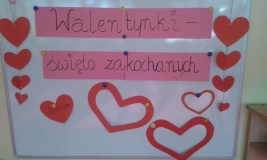 Walentynki -
święto zakochanych